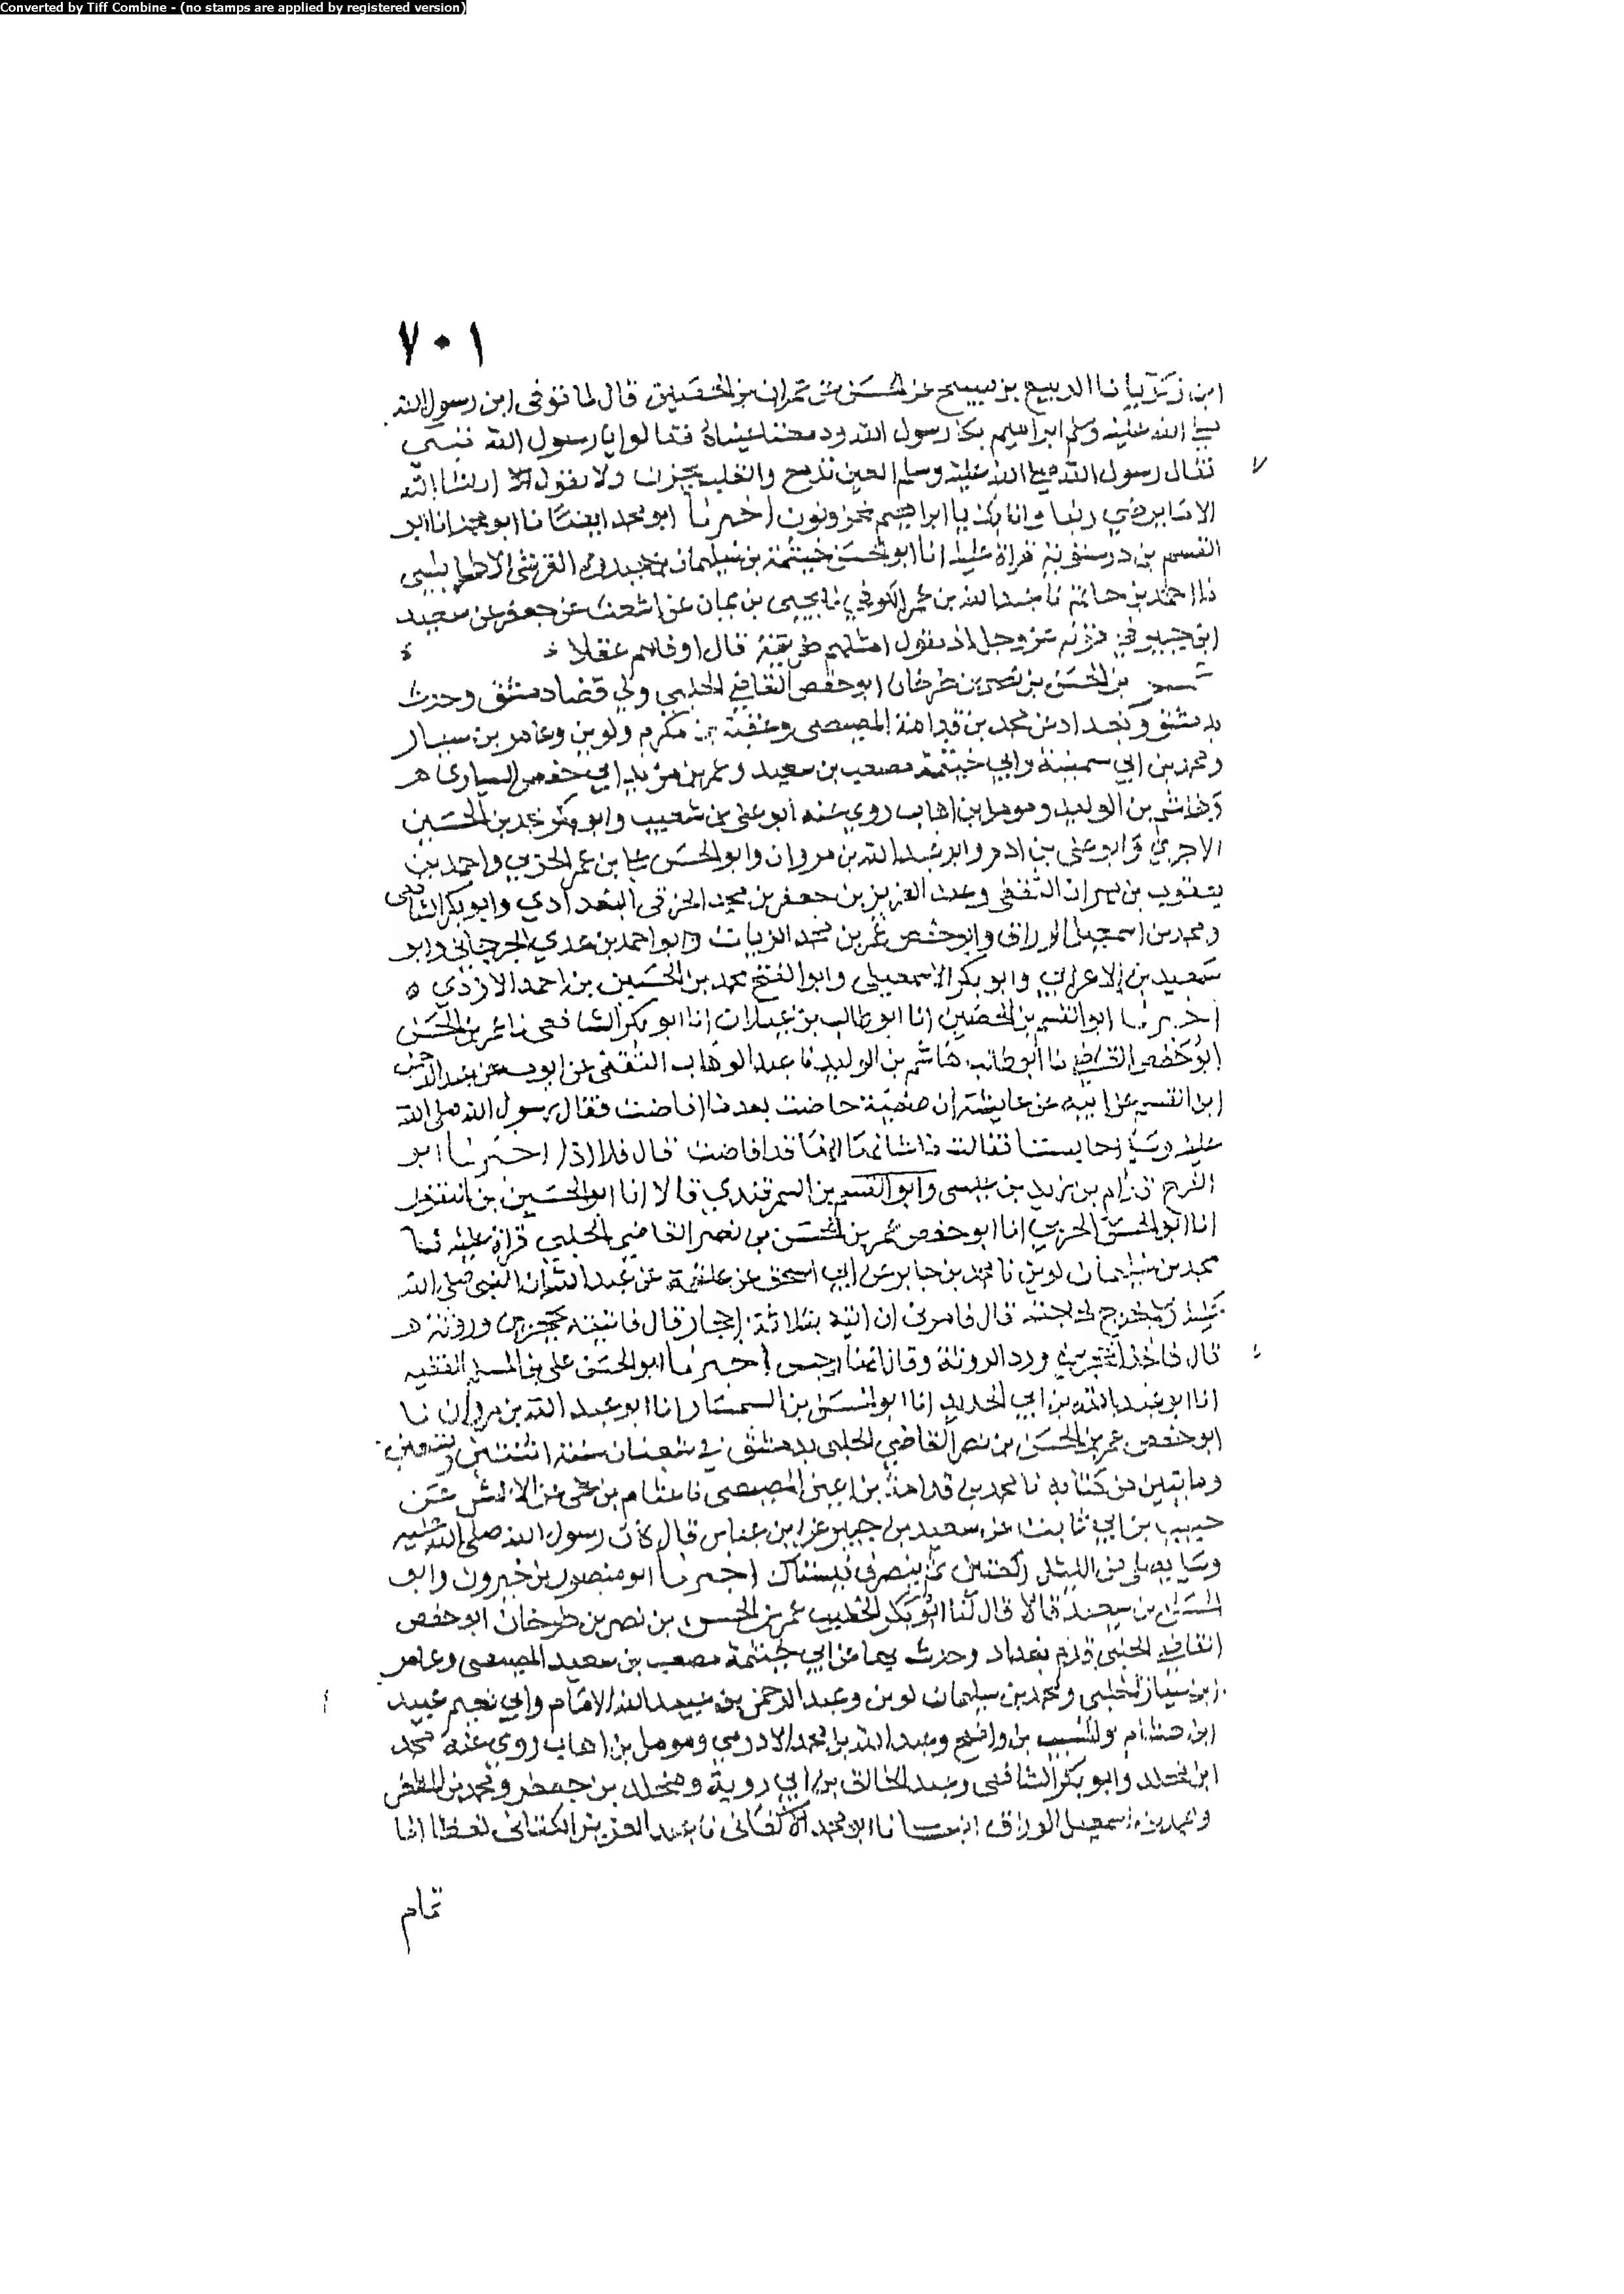 Converted by Tiff Combine - (no stamps are applied by registered version)
٧٠١
ابن زكريا نا الربيع بن صبيح عن الحسن عن عمران بن الحصين قال لما توفى ابن رسول الله
صلى الله عليه وسلم ابراهيم بكا رسول الله ودمعتا عيناه فقالوا يا رسول الله تبكي
فقال رسول الله صلى الله عليه وسلم العين تدمع والقلب يحزن ولا نقول الا ان شا الله
الا ما يرضي ربنا وانا بك يا ابراهيم لمحزونون اخبرنا ابو محمد ايضا نا ابو محمد انا ابو
القسم بن درستويه قراة عليه انا ابو الحسن خيثمة بن سليمان بن حيدرة القرشي الاطرابلسي
نا احمد بن حاتم نا عبد الله بن عمر الكوفي نا يحيى بن يمان عن اشعث عن جعفر عن سعيد
ابن جبير في قوله عز وجل اذ يقول امثلهم طريقة قال اوفاهم عقلا
عمر بن الحسن بن نصر بن طرخان ابو حفص القاضي الحلبي ولي قضا دمشق وحدث
بدمشق وبغداد عن محمد بن قدامة المصيصي وعقبة بن مكرم ولوين وعامر بن سيار
ومحمد بن ابي سمينة وابي خيثمة مصعب بن سعيد وعمر بن مزيد ابي حفص السياري
وهاشم بن الوليد ومومل بن اهاب روي عنه ابو علي بن شعيب وابو بكر محمد بن الحسين
الاجري وابو علي بن ادم وابو عبد الله بن مروان وابو الحسن علي بن عمر الحربي واحمد بن
يعقوب بن مهران الثقفي وعبد العزيز بن جعفر بن محمد الخرقي البغدادي وابو بكر الشافعي
ومحمد بن اسمعيل الوراق وابو حفص عمر بن محمد الزيات وابو احمد بن عدي الجرجاني وابو
سعيد بن الاعرابي وابو بكر الاسمعيلي وابو الفتح محمد بن الحسين بن احمد الازدي
اخبرنا ابو القسم بن الحصين انا ابو طالب بن غيلان انا ابو بكر الشافعي نا عمر بن الحسن
ابو حفص القاضي نا ابو طالب هاشم بن الوليد نا عبد الوهاب الثقفي عن ايوب عن عبد الرحمن
ابن القسم عن ابيه عن عايشة ان صفية حاضت بعد ما افاضت فقال رسول الله صلى الله
عليه وسلم احابستنا فقالت انها قد افاضت قال فلا اذا اخبرنا ابو
الفرج قوام بن زيد بن عيسى وابو القسم بن السمرقندي قالا انا ابو الحسين بن النقور
انا ابو الحسن الحربي انا ابو حفص عمر بن الحسن بن نصر القاضي الحلبي قراة عليه نا
محمد بن سليمان لوين نا محمد بن جابر عن ابي اسحق عن علقمة عن عبد الله ان النبي صلى الله
عليه وسلم خرج لحاجته قال فامرني ان اتيه بثلاثة احجار قال فاتيته بحجرين وروثة
قال فاخذ الحجرين ورد الروثة وقال انها رجس اخبرنا ابو الحسن علي بن المسلم الفقيه
انا ابو عبد الله بن ابي الحديد انا ابو الحسن بن السمسار انا ابو عبد الله بن مروان نا
ابو حفص عمر بن الحسن بن نصر القاضي الحلبي بدمشق في شعبان سنة اثنتين وتسعين
ومايتين من كتابه نا محمد بن قدامة بن اعين المصيصي نا عثام بن علي عن الاعمش عن
حبيب بن ابي ثابت عن سعيد بن جبير عن ابن عباس قال كان رسول الله صلى الله عليه
وسلم يصلي من الليل ركعتين ثم ينصرف فيستاك اخبرنا ابو منصور بن خيرون وابو
الحسن بن سعيد قالا قال لنا ابو بكر الخطيب عمر بن الحسن بن نصر بن طرخان ابو حفص
القاضي الحلبي قدم بغداد وحدث بها عن ابي خيثمة مصعب بن سعيد المصيصي وعامر
ابن سيار الحلبي ومحمد بن سليمان لوين وعبد الرحمن بن عبيد الله الامام وابي نعيم عبيد
ابن هشام والمسيب بن واضح وعبد الله بن محمد الاذرمي ومومل بن اهاب روي عنه محمد
ابن مخلد وابو بكر الشافعي وعبد الخالق بن ابي روبة ومخلد بن جعفر ومحمد بن المظفر
ومحمد بن اسمعيل الوراق انبانا ابو محمد الاكفاني نا عبد العزيز الكتاني لفظا انا
تمام